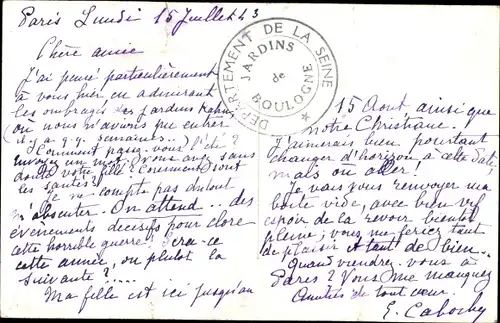 Paris Lundi 15 Juillet 43
Chère amie
J'ai pensé particulièrement
à vous hier en admirant
les ombrages des jardins Kahn,
(ou nous n'avions pu entrer
il y a qq. semaines..
Comment passez-vous l'été?
Envoyez un mot. Vous avez sans
doute votre fille? Comment vont
les santés?
Je ne compte pas du tout
m'absenter. On attend... des
évènements décisifs pour clore
cette horrible guerre! Sera-ce
cette année, ou plutôt la
suivante?....
Ma fille est ici jusqu'au
DEPARTEMENT DE LA SEINE
JARDINS
de
BOULOGNE
15 Aout ainsi que
notre Christiane.
J'aimerais bien pourtant
changer d'horizon à cette date
mais où aller!
Je vais vous renvoyer ma
boîte vide, avec bien vif
espoir de la revoir bientôt
pleine; vous me feriez tant
de plaisir et tant de bien..
Quand viendrez-vous à
Paris? Vous me manquez
Amitiés de tout cœur.
E. Caboche